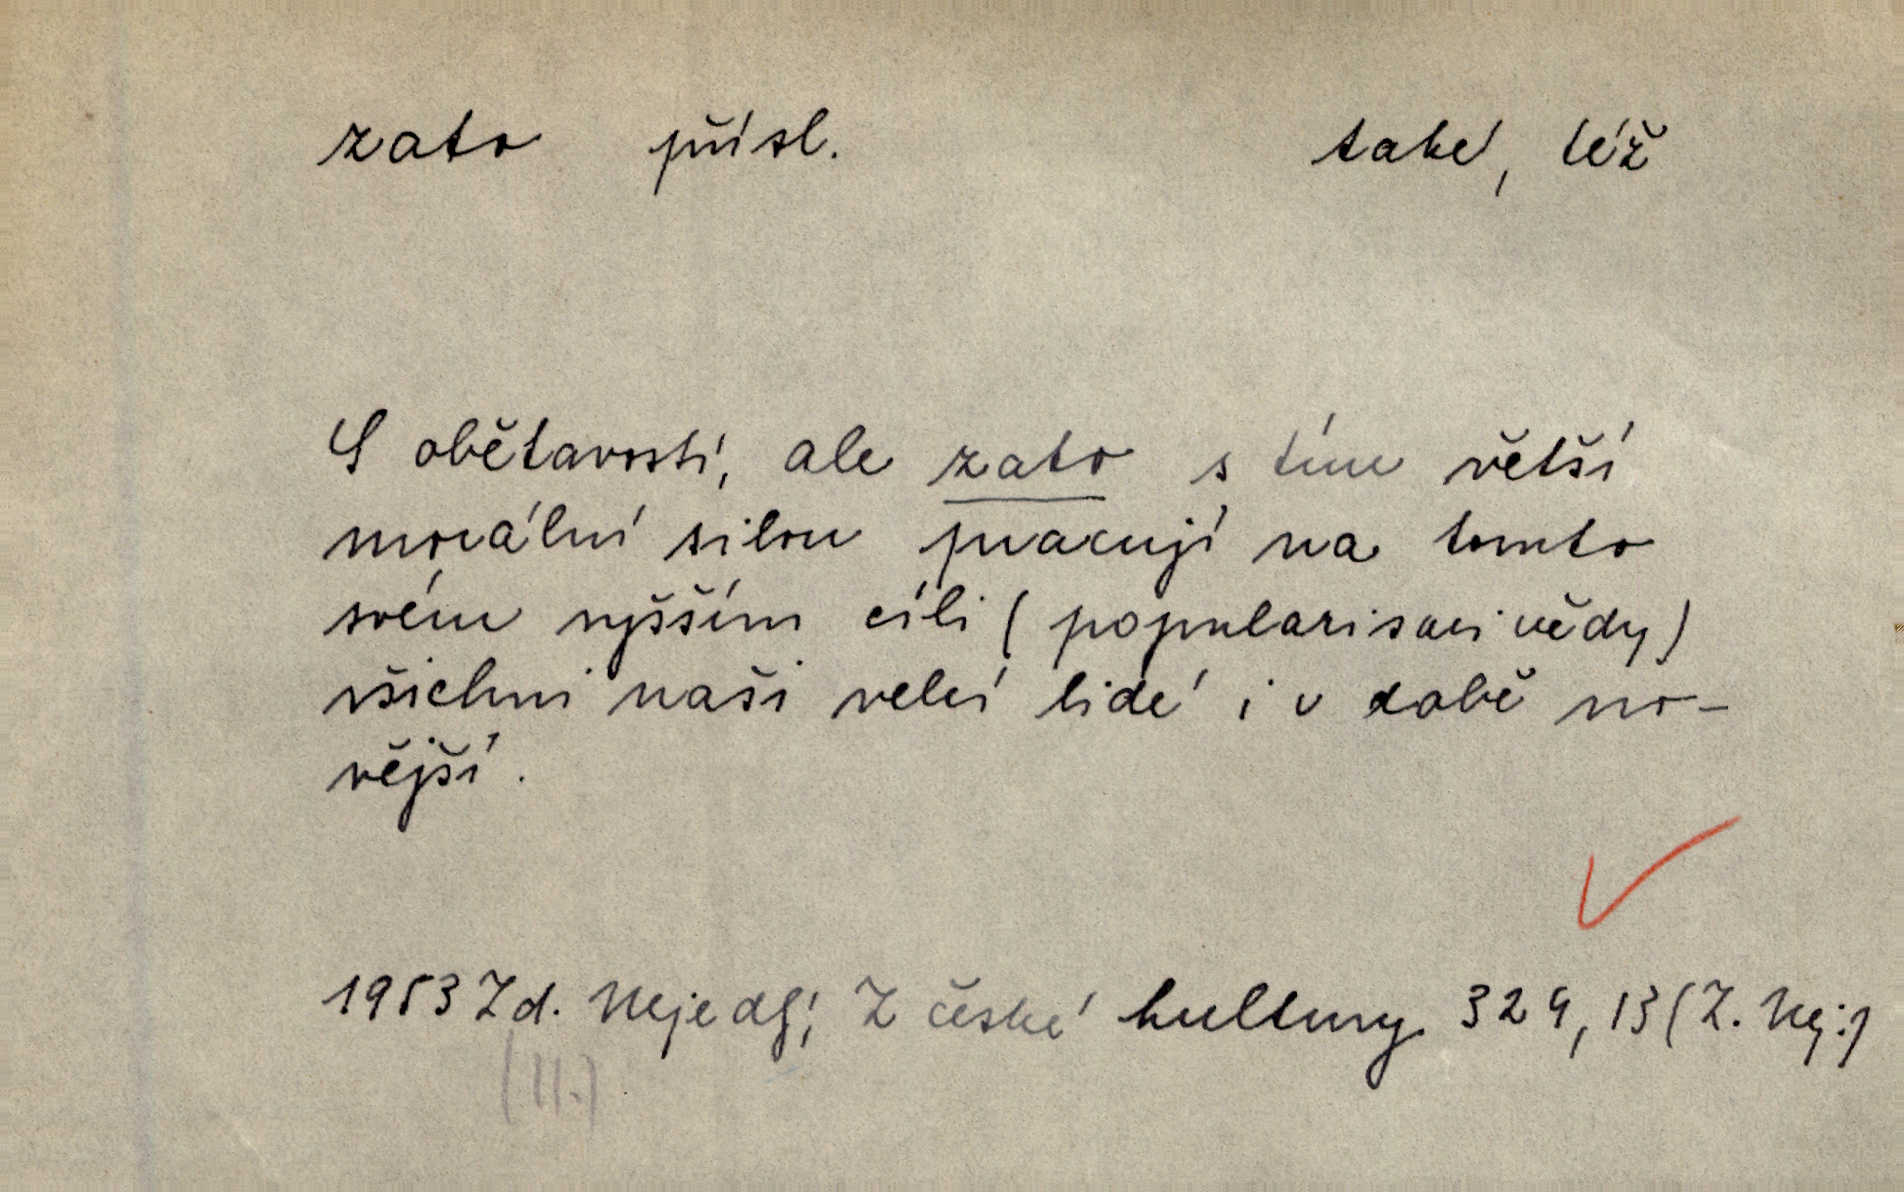 zato přísl. také, též
S obětavostí, ale zato s tím větší
morální silou pracují na tomto
svém vyšším cíli (popularisaci vědy)
všichni naši velcí lidé i v době no-
vější.
1953 Zd. Nejedlý, Z české kultury 329, 13 (Z. Nej.)
(II.)